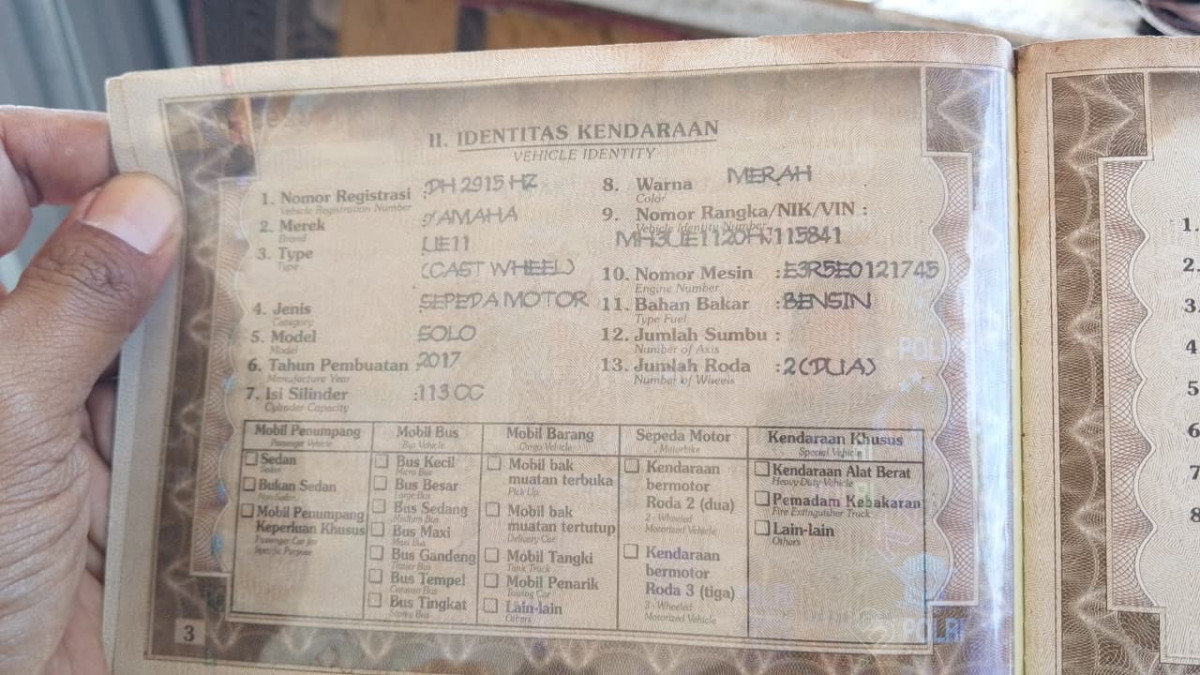 II. IDENTITAS KENDARAAN
VEHICLE IDENTITY
1. Nomor Registrasi : DH 2915 HZ
Vehicle Registration Number
2. Merek : YAMAHA
Brand
3. Type : UE11
Type
(CAST WHEEL)
4. Jenis : SEPEDA MOTOR
Category
5. Model : SOLO
Model
6. Tahun Pembuatan : 2017
Manufacture Year
7. Isi Silinder : 113 CC
Cylinder Capacity
8. Warna MERAH
Color
9. Nomor Rangka/NIK/VIN :
Vehicle Identity Number
MH3UE1120HJ115841
10. Nomor Mesin : E3R5E0121745
Engine Number
11. Bahan Bakar : BENSIN
Type Fuel
12. Jumlah Sumbu :
Number of Axis
13. Jumlah Roda : 2 (DUA)
Number of Wheels
Mobil Penumpang
Passenger Vehicle
Sedan
Sedan
Bukan Sedan
Mobil Penumpang
Keperluan Khusus
Passenger Car for
Specific Purpose
Mobil Bus
Bus Vehicle
Bus Kecil
Micro Bus
Bus Besar
Large Bus
Bus Sedang
Medium Bus
Bus Maxi
Maxi Bus
Bus Gandeng
Bus Tempel
Bus Tingkat
Mobil Barang
Mobil bak
muatan terbuka
Pick Up
Mobil bak
muatan tertutup
Delivery Car
Mobil Tangki
Tank Truck
Mobil Penarik
Towing Car
Lain-lain
Others
Sepeda Motor
Motorbike
Kendaraan
bermotor
Roda 2 (dua)
2 - Wheeled
Motorized Vehicle
Kendaraan
bermotor
Roda 3 (tiga)
3 - Wheeled
Motorized Vehicle
Kendaraan Khusus
Special Vehicle
Kendaraan Alat Berat
Heavy Duty Vehicle
Pemadam Kebakaran
Fire Extinguisher Truck
Lain-lain
Others
POLRI
3
1.
2.
3.
4
5
6
7
8